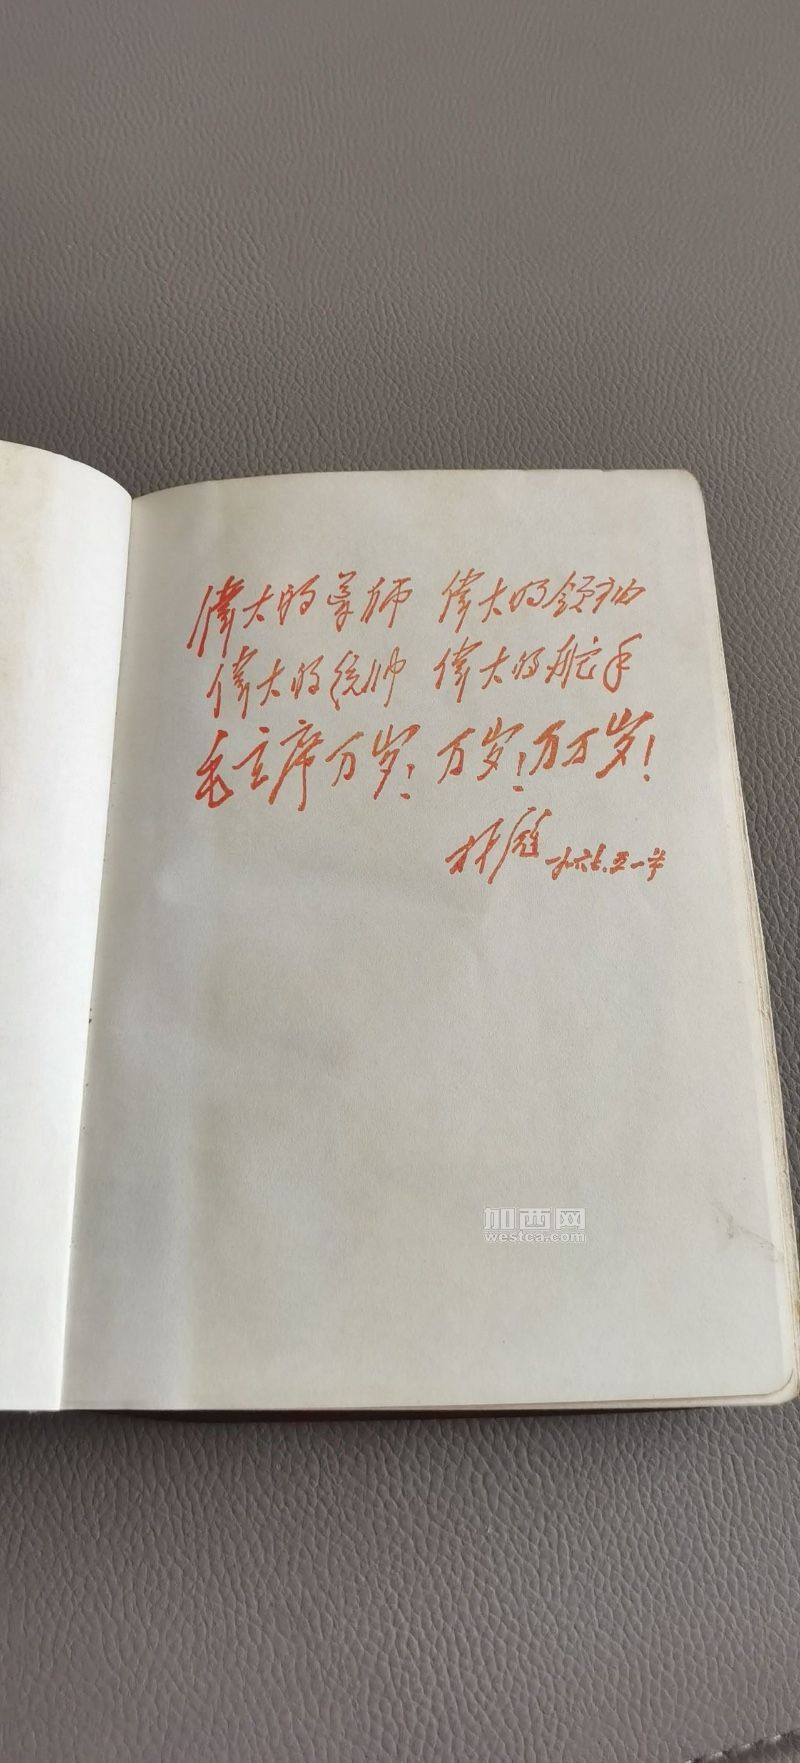 偉大的导师 偉大的领袖
偉大的统帅 偉大的舵手
毛主席万岁！万岁！万万岁！
林彪 一九六七.五.一六
加西网
westca.com